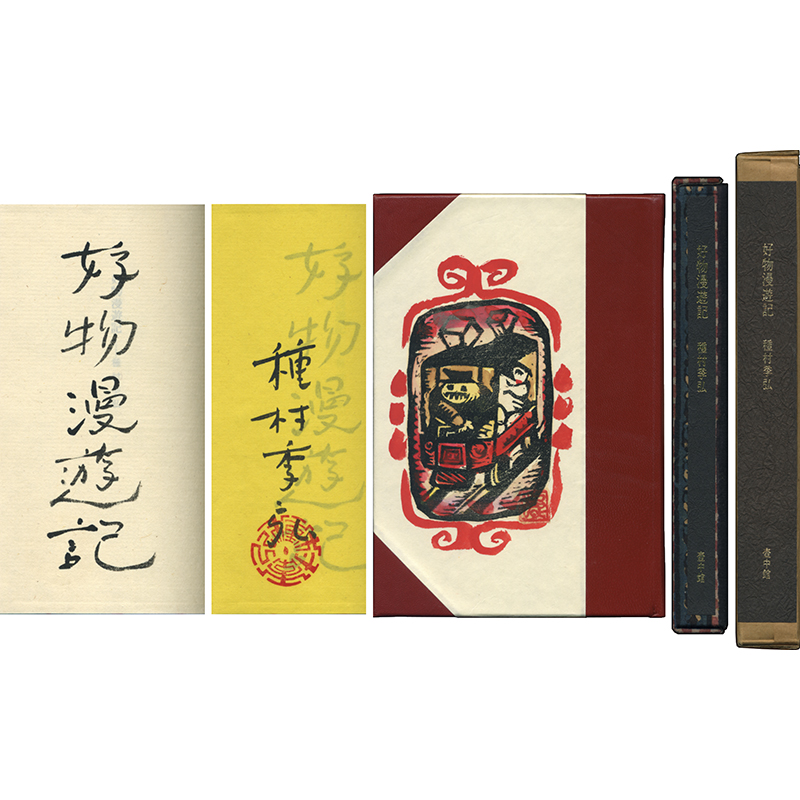 好物漫遊記
種村季弘
好物漫遊記
好物漫遊記 種村季弘 壺中館
好物漫遊記 種村季弘 壺中館